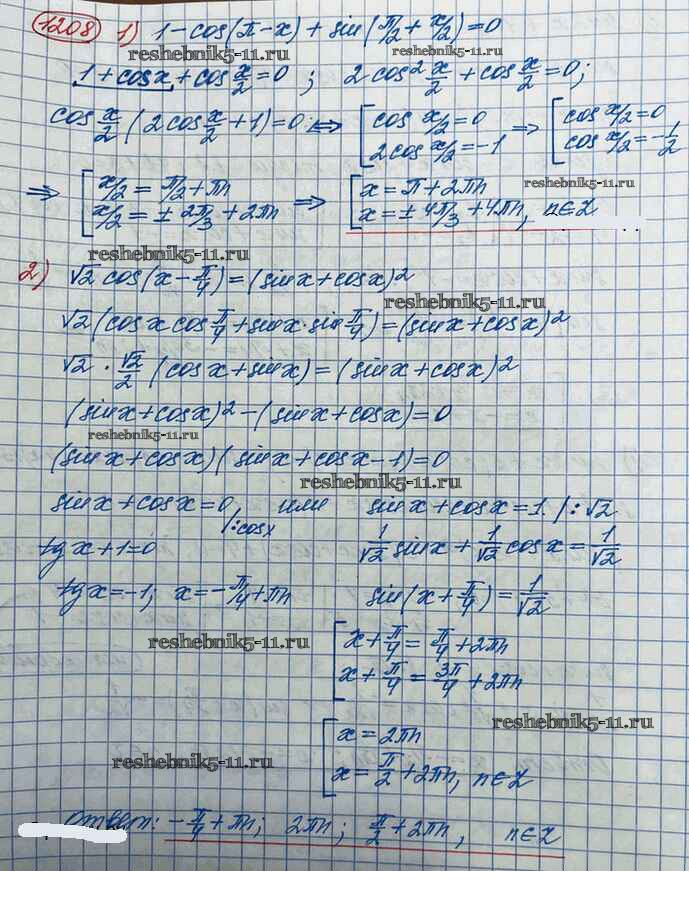 1208 1) 1-cos(π-x)+sin(π/2+x/2)=0
reshebnik5-11.ru
1+cosx+cos x/2=0; 2cos² x/2+cos x/2=0;
cos x/2 (2cos x/2+1)=0 ⇔ [cos x/2=0 ⇒ [cos x/2=0
2cos x/2=-1 cos x/2=-1/2
reshebnik5-11.ru
⇒ [x/2=π/2+πn ⇒ [x=π+2πn
x/2=±2π/3+2πn x=±4π/3+4πn, n∈Z
reshebnik5-11.ru
2) √2 cos(x-π/4)=(sinx+cosx)²
reshebnik5-11.ru
√2(cosx cos π/4+sinx·sin π/4)=(sinx+cosx)²
√2·√2/2 (cosx+sinx)=(sinx+cosx)²
(sinx+cosx)²-(sinx+cosx)=0
reshebnik5-11.ru
(sinx+cosx)(sinx+cosx-1)=0
reshebnik5-11.ru
sinx+cosx=0 |:cosx или sinx+cosx=1 |:√2
tgx+1=0 1/√2 sinx+1/√2 cosx=1/√2
tgx=-1; x=-π/4+πn sin(x+π/4)=1/√2
reshebnik5-11.ru
[x+π/4=π/4+2πn
x+π/4=3π/4+2πn
reshebnik5-11.ru
[x=2πn
reshebnik5-11.ru
x=π/2+2πn, n∈Z
Ответ: -π/4+πn; 2πn; π/2+2πn, n∈Z